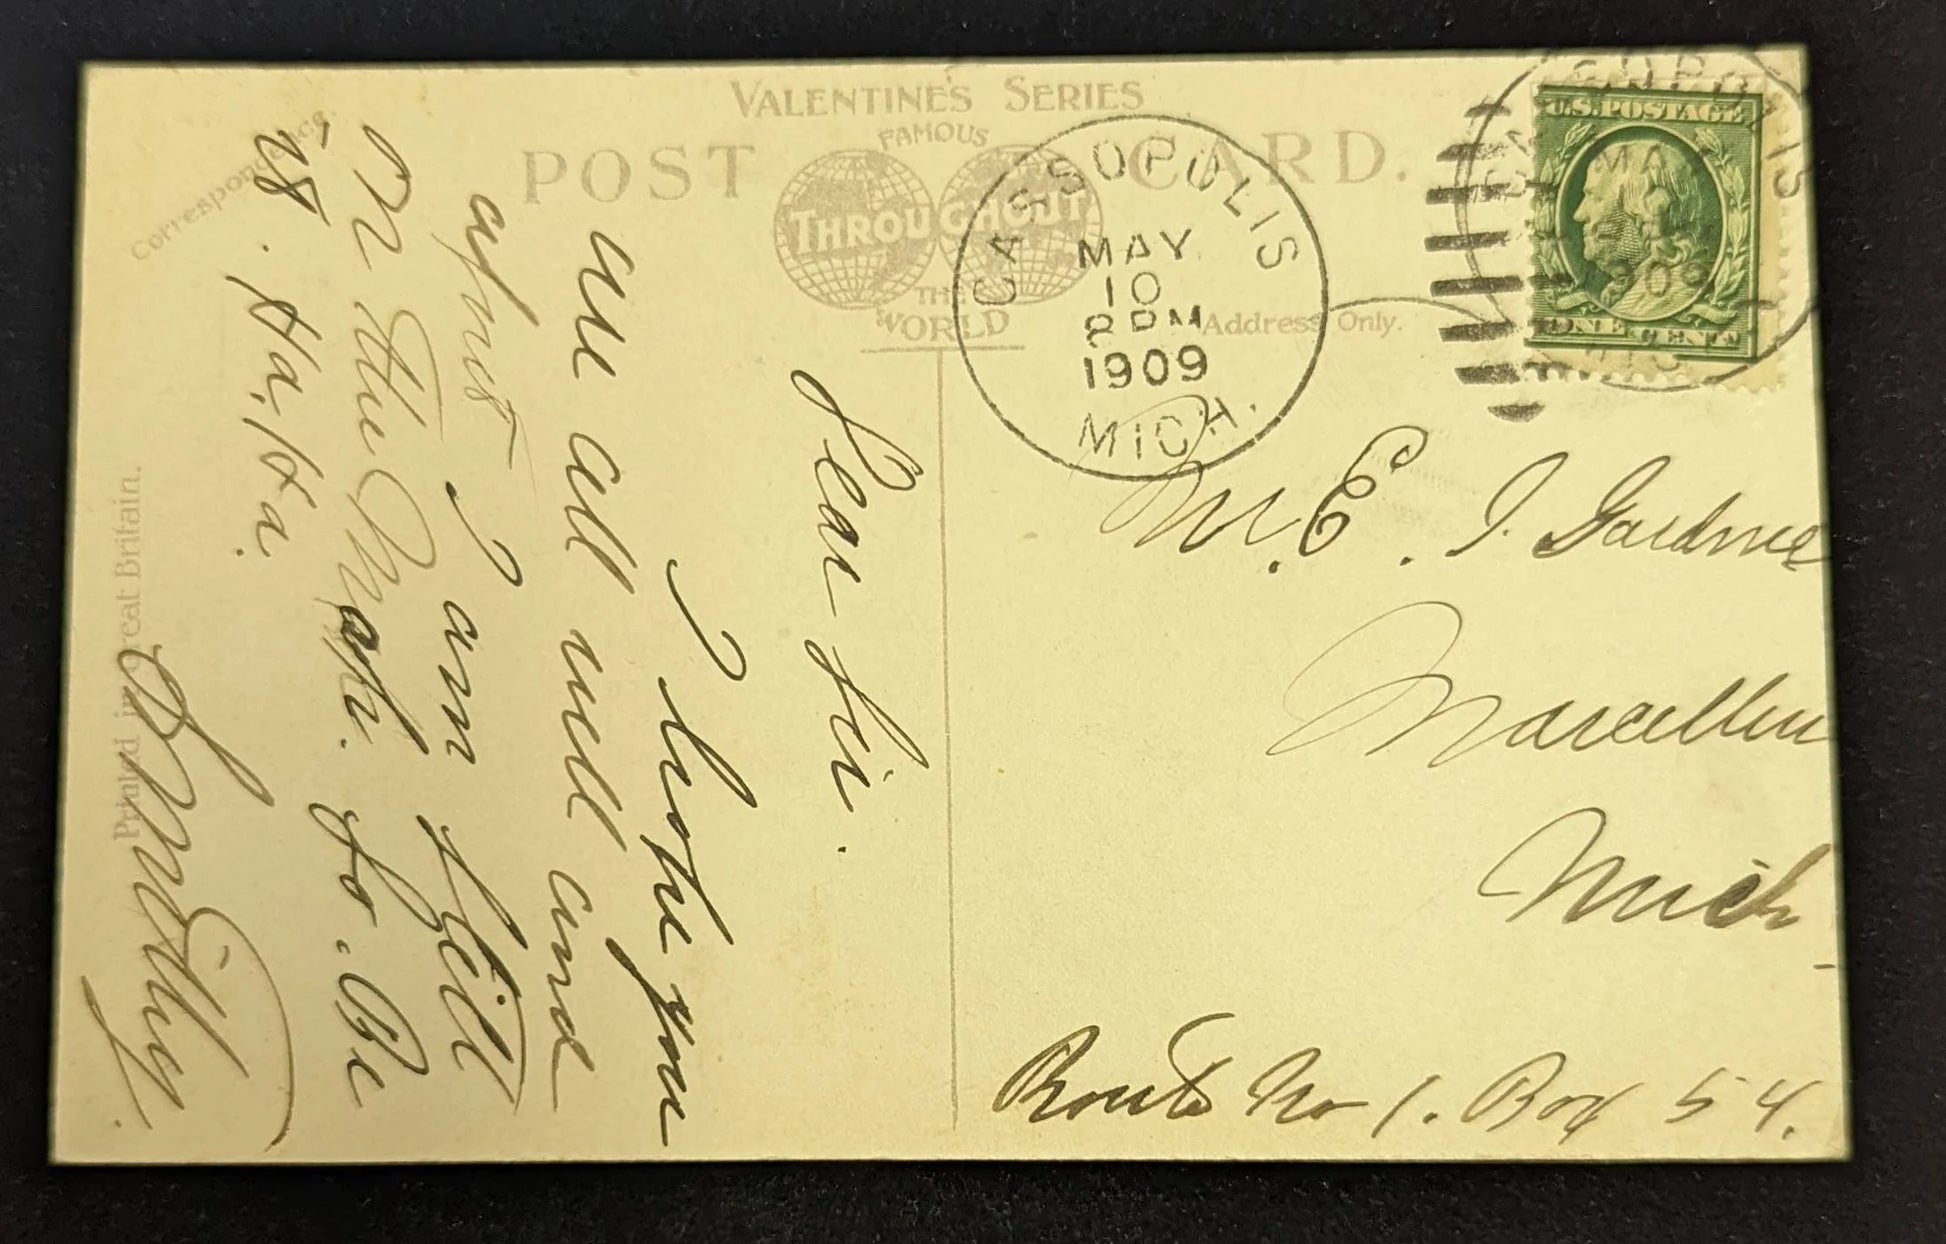 VALENTINE'S SERIES
FAMOUS
POST CARD.
THROUGHOUT
THE
WORLD
Correspondence.
Address Only.
Printed in Great Britain.
CASSOPOLIS
MAY
10
2 PM
1909
MICH.
U.S. POSTAGE
ONE CENT
Dear Sir.
I hope you
are all well and
I am still
on the So. Be
'n8. Ha. Ha.
Mr. E. J. Gardner
Marcellus
Mich
Route No 1. Box 54.